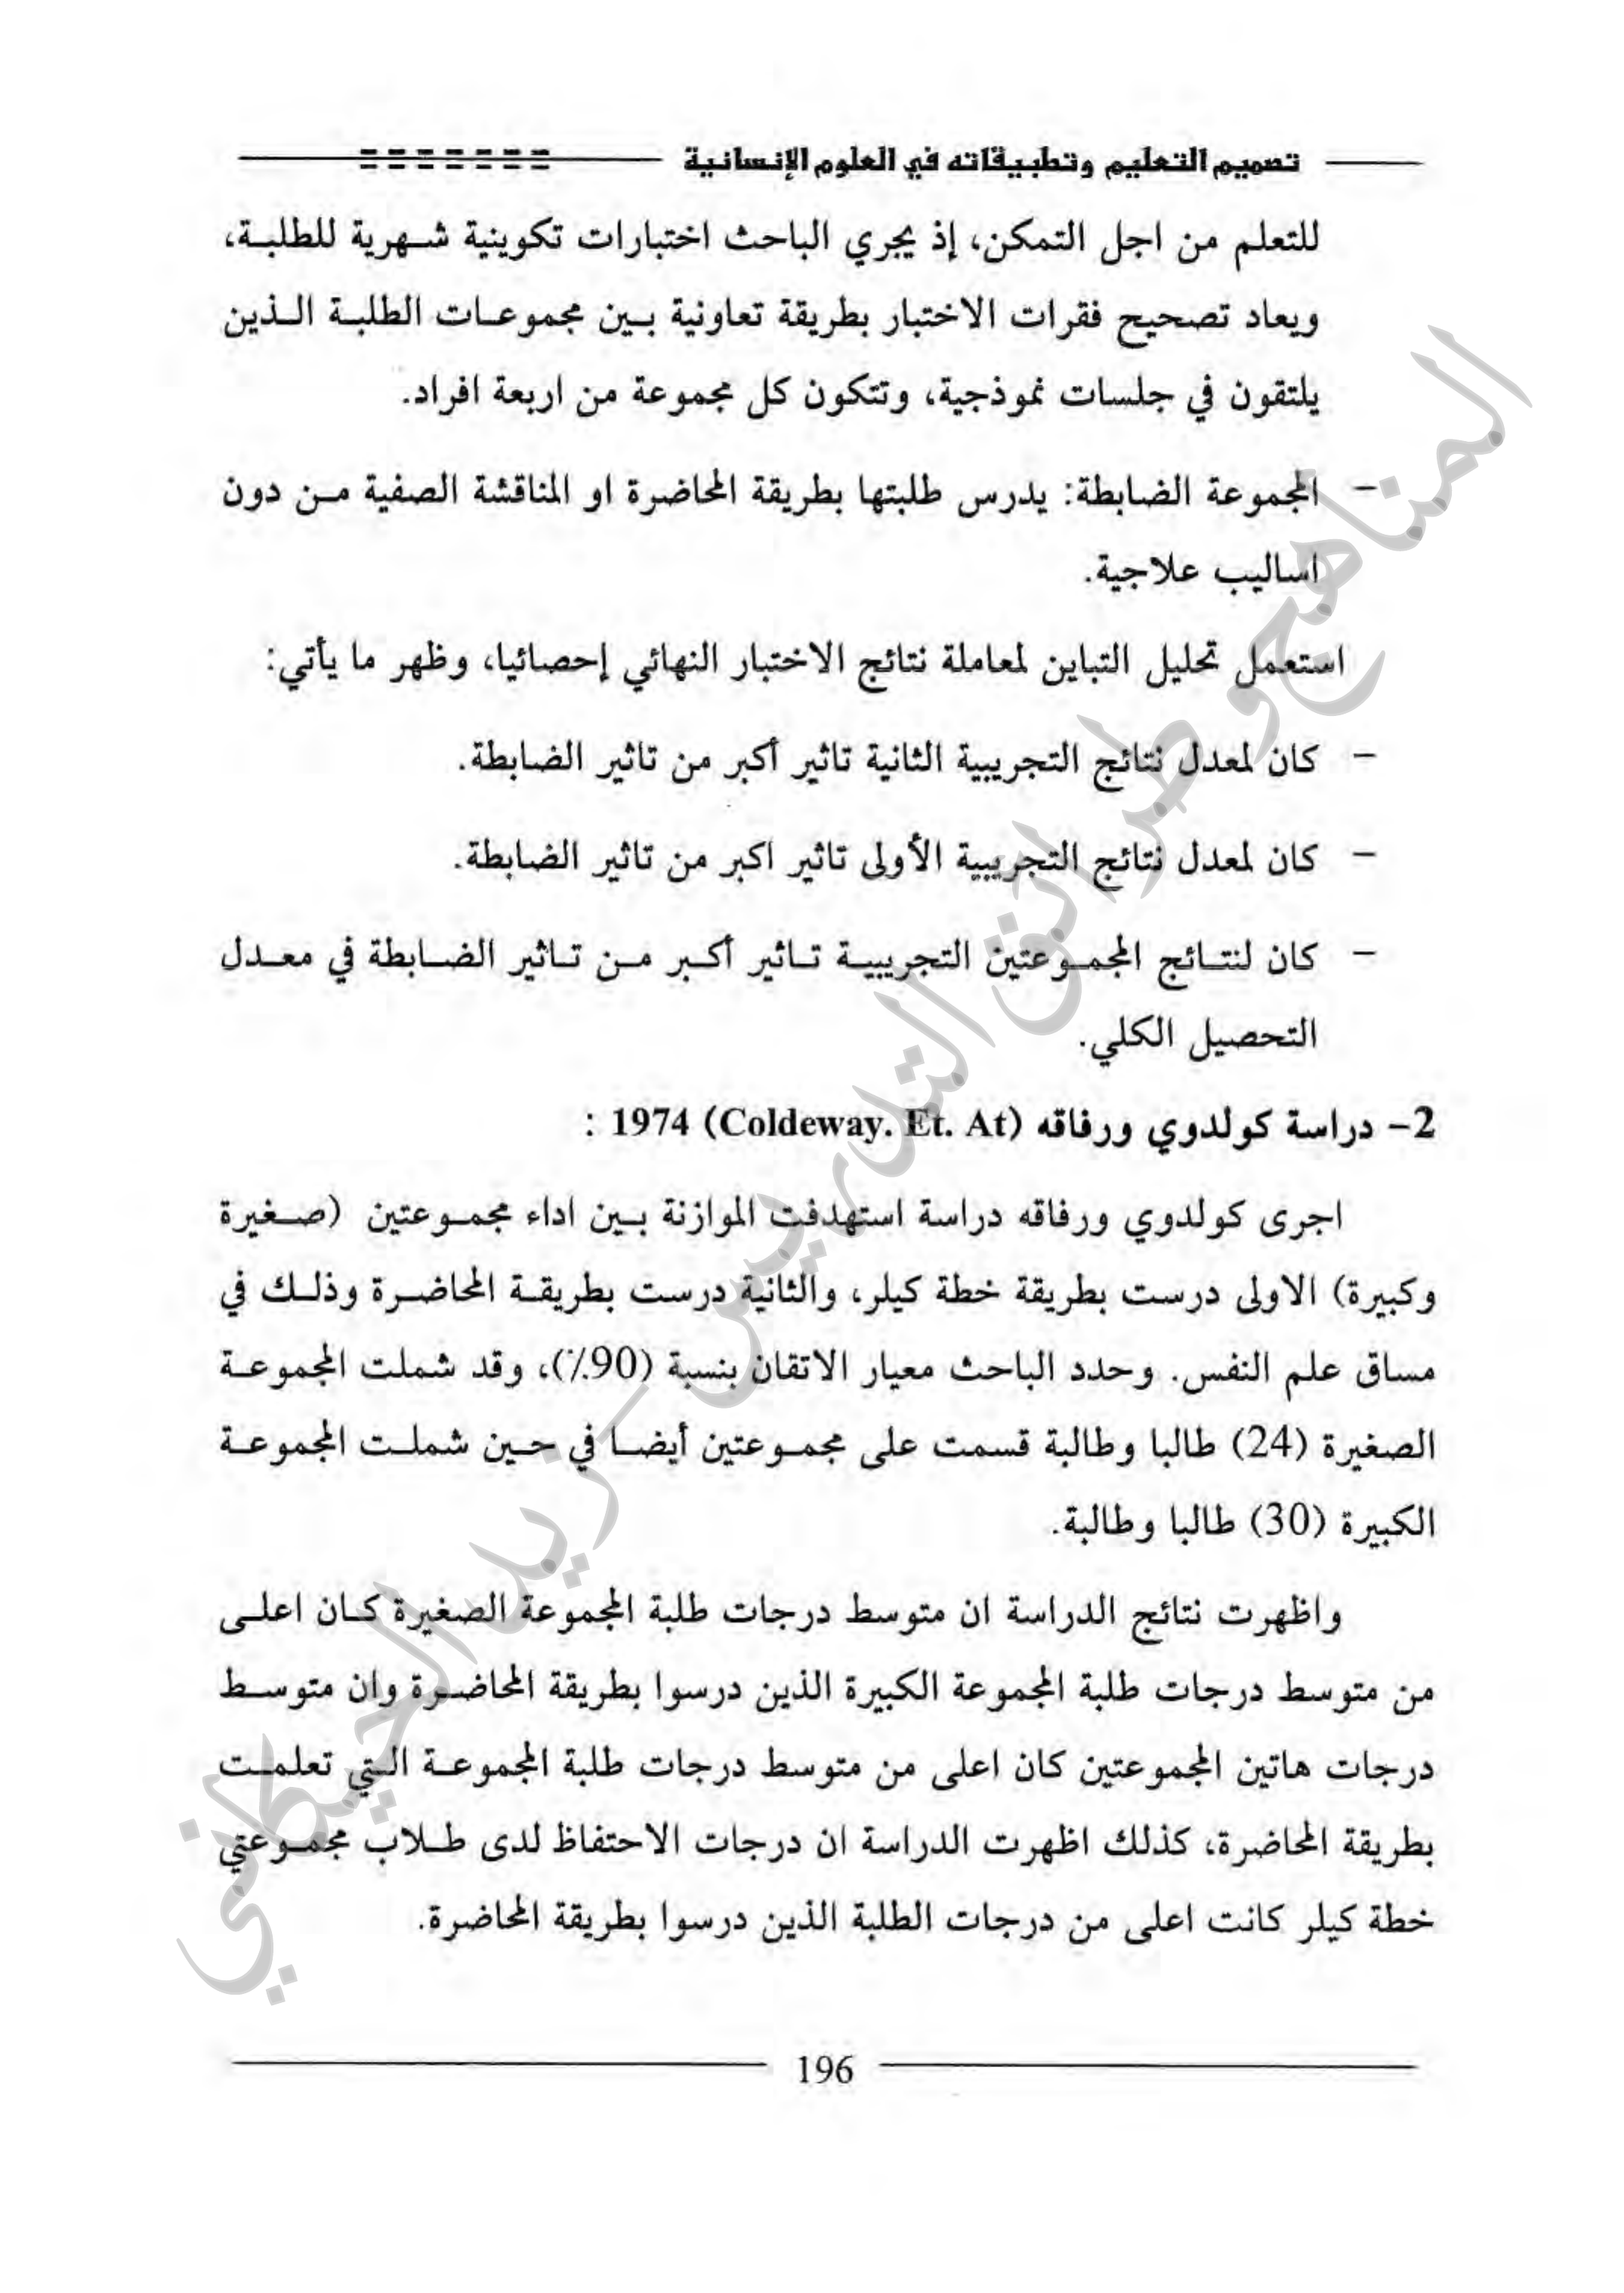 تصميم التعليم وتطبيقاته في العلوم الإنسانية
للتعلم من اجل التمكن، إذ يجري الباحث اختبارات تكوينية شهرية للطلبة،
ويعاد تصحيح فقرات الاختبار بطريقة تعاونية بين مجموعات الطلبة الذين
يلتقون في جلسات نموذجية، وتتكون كل مجموعة من اربعة افراد.
- المجموعة الضابطة: يدرس طلبتها بطريقة المحاضرة او المناقشة الصفية من دون
اساليب علاجية.
استعمل تحليل التباين لمعاملة نتائج الاختبار النهائي إحصائيا، وظهر ما يأتي:
- كان لمعدل نتائج التجريبية الثانية تاثير أكبر من تاثير الضابطة.
- كان لمعدل نتائج التجريبية الأولى تاثير اكبر من تاثير الضابطة.
- كان لنتائج المجموعتين التجريبية تاثير أكبر من تاثير الضابطة في معدل
التحصيل الكلي.
2- دراسة كولدوي ورفاقه (Coldeway. Et. At) 1974 :
اجرى كولدوي ورفاقه دراسة استهدفت الموازنة بين اداء مجموعتين (صغيرة
وكبيرة) الاولى درست بطريقة خطة كيلر، والثانية درست بطريقة المحاضرة وذلك في
مساق علم النفس. وحدد الباحث معيار الاتقان بنسبة (90٪)، وقد شملت المجموعة
الصغيرة (24) طالبا وطالبة قسمت على مجموعتين أيضا في حين شملت المجموعة
الكبيرة (30) طالبا وطالبة.
واظهرت نتائج الدراسة ان متوسط درجات طلبة المجموعة الصغيرة كان اعلى
من متوسط درجات طلبة المجموعة الكبيرة الذين درسوا بطريقة المحاضرة وان متوسط
درجات هاتين المجموعتين كان اعلى من متوسط درجات طلبة المجموعة التي تعلمت
بطريقة المحاضرة، كذلك اظهرت الدراسة ان درجات الاحتفاظ لدى طلاب مجموعتي
خطة كيلر كانت اعلى من درجات الطلبة الذين درسوا بطريقة المحاضرة.
196
المناهج وطرائق التدريس - زيد الحيكاني